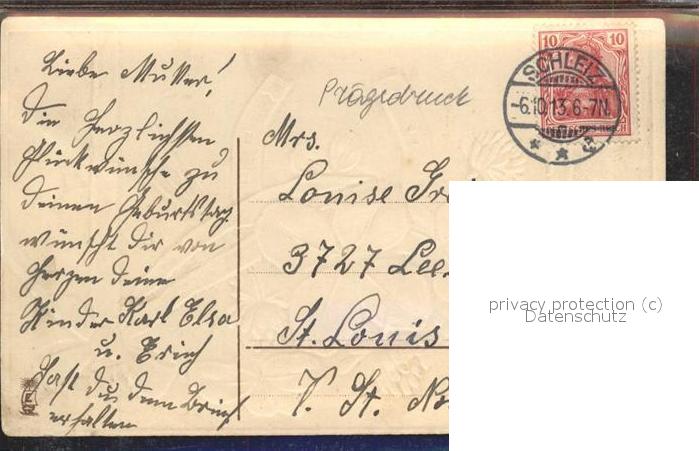 Liebe Mutter!
Die herzlichsten
Glückwünsche zu
deinem Geburtstag
wünscht dir von
Herzen deine
Kinder Karl Elsa
u. Erich
Hast du den Brief
erhalten
Prägedruck
10 10
SCHLEIZ
-6.10.13.6-7N.
Mrs.
Louise
3727 Lee
St. Louis
V. St.
privacy protection (c)
Datenschutz